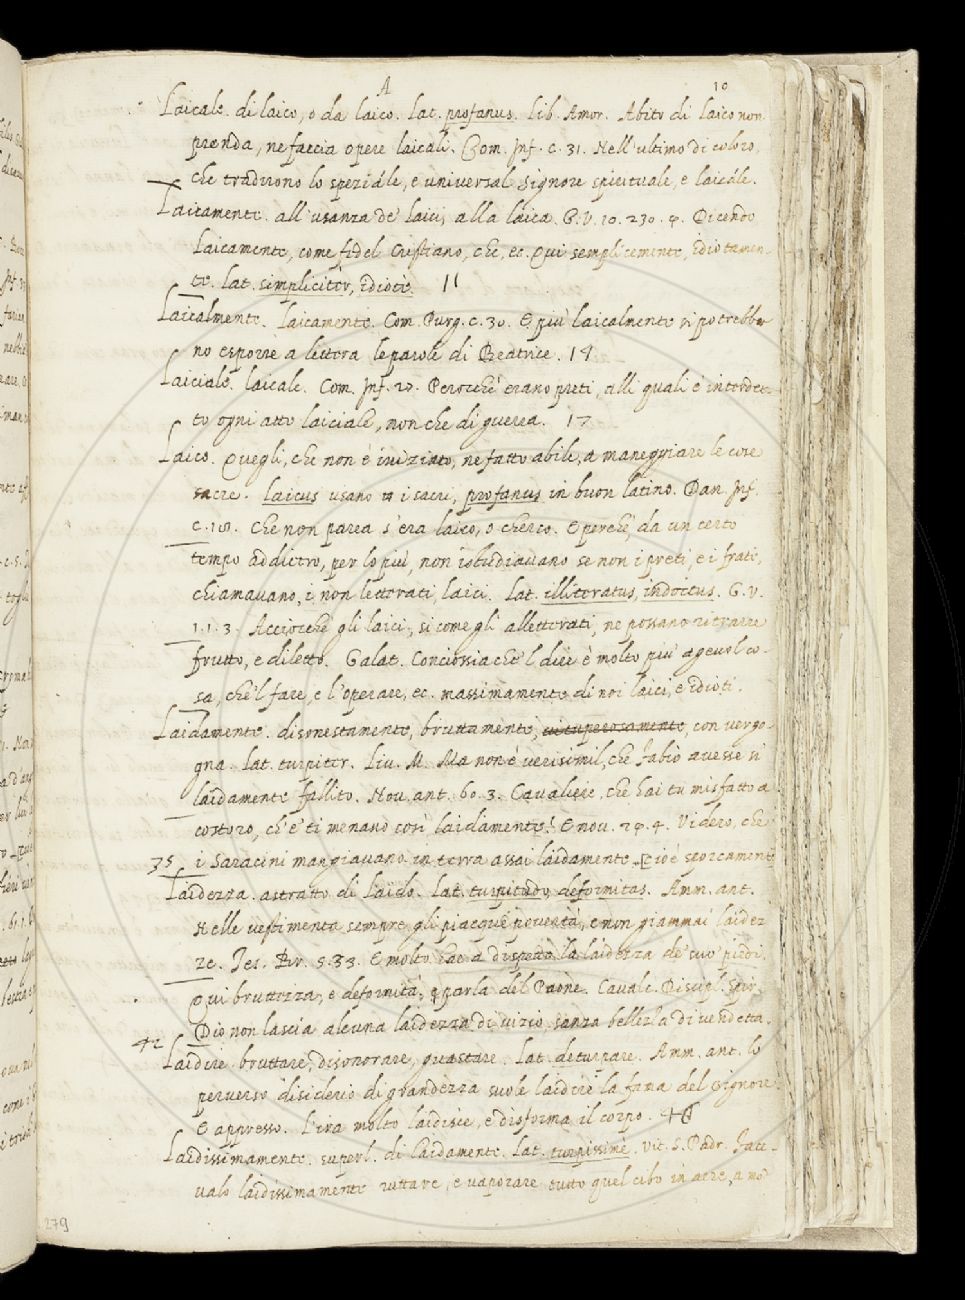 A
10
Laicale. di laico, o da laico. Lat. profanus. Lib. Amor. Abito di laico non
prenda, ne faccia opere laicali. Com. Inf. c. 31. Nell'ultimo di coloro,
che tradirono lo spezïále, e universal signore spirituale, e laicále.
Laicamente. all'usanza de' laici, alla laica. G.V. 10. 230. 4. Dicendo
laicamente, come fidel Cristiano, che, ec. Qui semplicemente, idiotamen-
te. Lat. simplicitèr, idiotè. 11
Laicalmente. Laicamente. Com. Purg. c. 30. E più laicalmente si potrebbe-
no esporre a lettera le parole di Beatrice. 14
Laiciale. laicale. Com. Inf. 27. Perocchè erano preti, alli quali è interdet-
to ogni atto laiciale, non che di guerra. 17
Laico. Quegli, che non è iniziato, ne fatto abile, a maneggiare le cose
sacre. laicus usano i sacri, profanus in buon latino. Dan. Inf.
c. 18. Che non parea s'era laico, o cherco. E perchè, da un certo
tempo addietro, per lo più, non istudiavano se non i preti, e i frati,
chiamavano, i non letterati, laici. Lat. illiteratus, indoctus. G. V.
1. 1. 3. Acciocchè gli laici, si come gli alletterati, ne possano ritrarre
frutto, e diletto. Galat. Conciossiachè 'l dire è molto più agevol co-
sa, che 'l fare, e l'operare, ec. massimamente di noi laici, e idioti.
Laidamente. disonestamente, bruttamente, vituperosamente, con vergo-
gna. Lat. turpiter. Liv. M. Ma non è verisimil, che Fabio avesse sì
laidamente fallito. Nov. ant. 60. 3. Cavaliere, che hai tu misfatto a
costoro, ch'e' ti menano così laidamente? E nov. 24. 4. Videro, che
35 i Saracini mangiavano in terra assai laidamente cioè sporcamente
Laidezza. astratto di Laido. Lat. turpitudo, deformitas. Amm. ant.
Nelle vestimenta sempre gli piacque povertà, e non giammai laidez
ze. Tes. Br. 5. 33. E molto hae a dispetto la laidezza de' suo' piedi.
Qui bruttezza, e deformità, e parla del Paone. Cavalc. Discipl. spir.
Dio non lascia alcuna laidezza di vizio senza bellezza di vendetta.
42
Laidire. bruttare, disonorare, guastare. Lat. deturpare. Amm. ant. lo
perverso disiderio di grandezza suole laidire la fama del signore.
E appresso. L'ira molto laidisce, e disforma il corpo. 46
Laidissimamente. superl. di laidamente. Lat. turpissimè. Vit. S. Padr.
laidissimamente ruttare, e vaporare tutto quel cibo in aere, a mo'
279